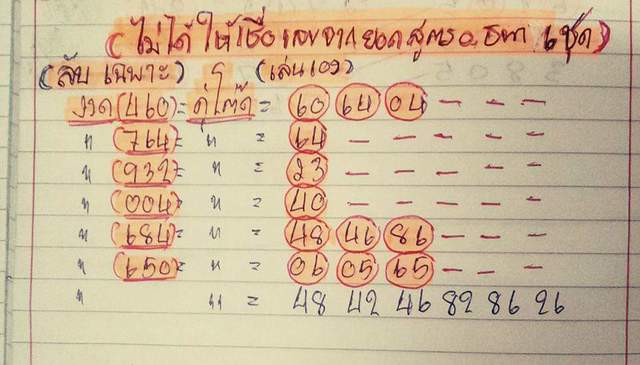 (ไม่ได้ ให้เชื่อ เลขจาก ยอด สูตร อ. 6 ชุด)
(ลับ เฉพาะ) (เล่นเอง)
งวด (460) = คู่โต๊ด = 60 64 04 - - -
" (764) = " = 64 - - - - -
" (932) = " = 23 - - - - -
" (004) = " = 40 - - - - -
" (684) = " = 48 46 86 - - -
" (650) = " = 06 05 65 - - -
" " = 48 42 46 82 86 26